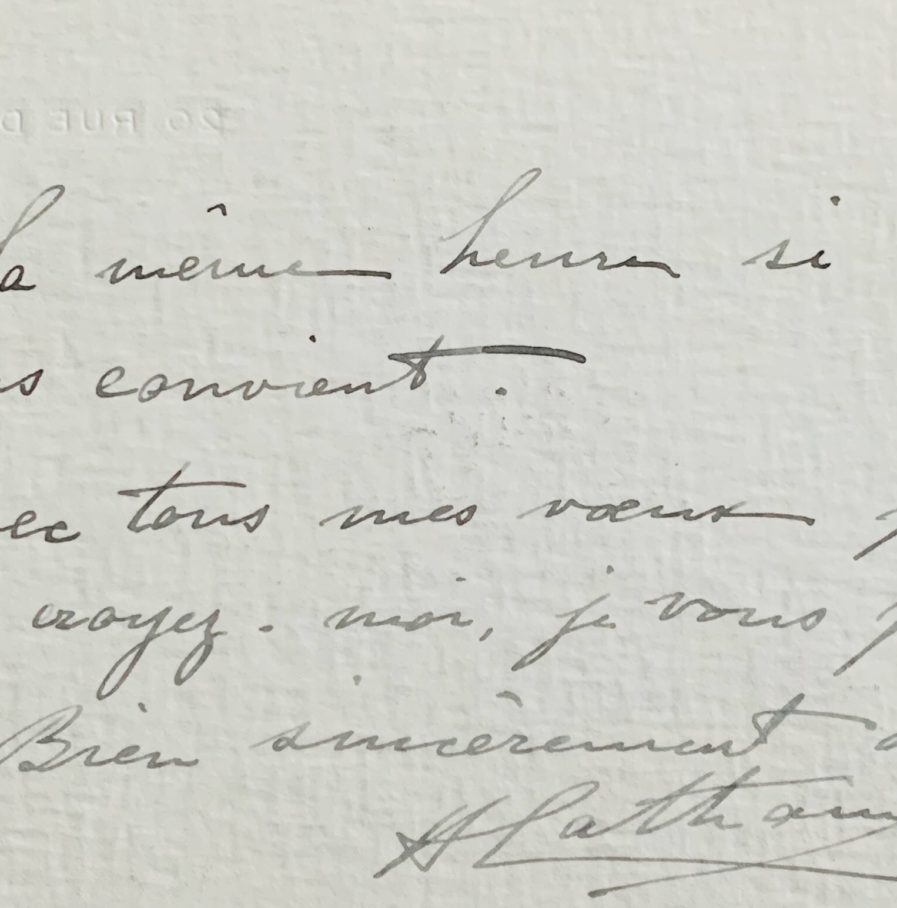 20 RUE D
la même heure si
us convient.
ec tous mes vœux
croyez-moi, je vous
Bien sincèrement
H Latham